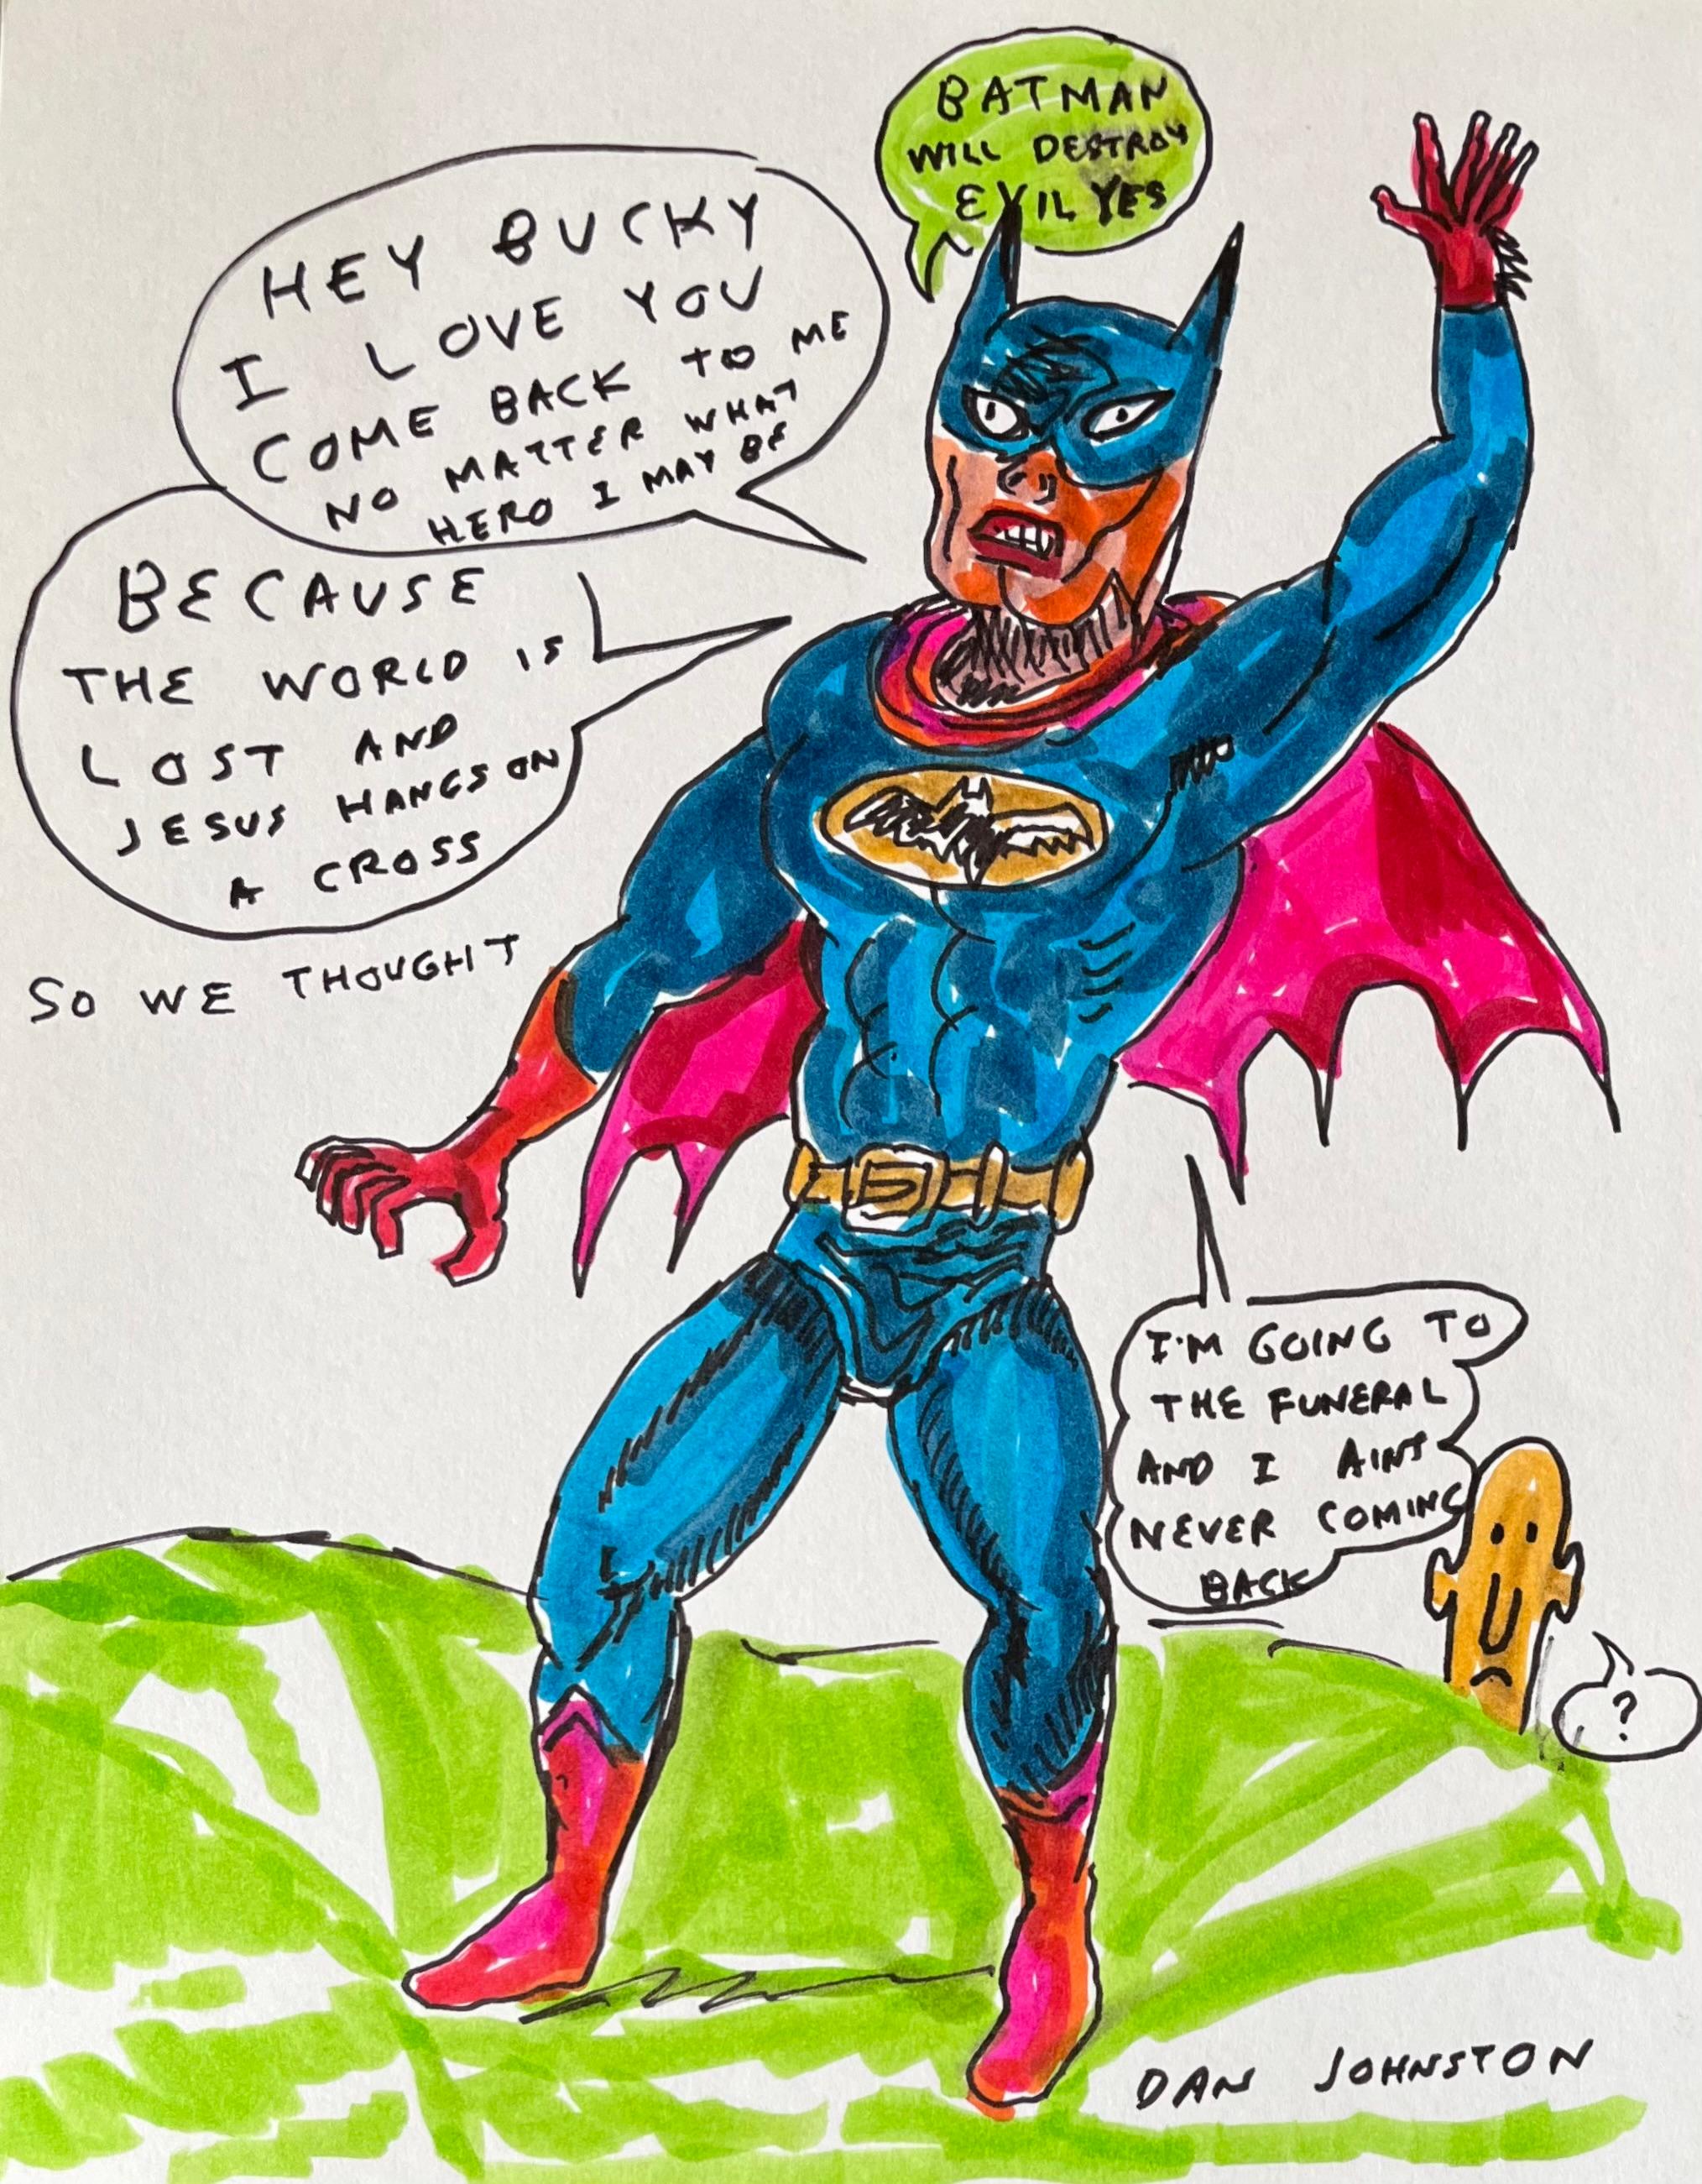 BATMAN
WILL DESTROY
EVIL YES
HEY BUCKY
I LOVE YOU
COME BACK TO ME
NO MATTER WHAT
HERO I MAY BE
BECAUSE
THE WORLD IS
LOST AND
JESUS HANGS ON
A CROSS
SO WE THOUGHT
I'M GOING TO
THE FUNERAL
AND I AINT
NEVER COMING
BACK
?
DAN JOHNSTON